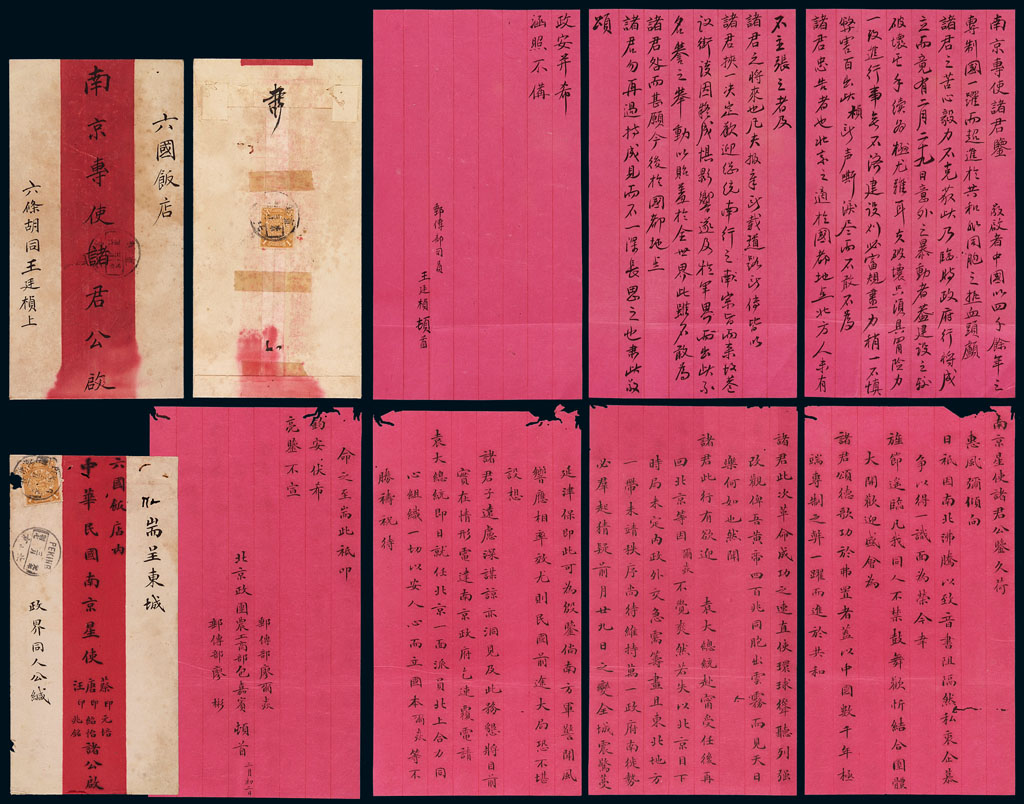 六國飯店
南京專使諸君公啟
六條胡同王廷楨上
南京專使諸君鑒 敬啟者中國以四千餘年之
專制國一躍而超進於共和此同胞之熱血頭顱
諸君之苦心毅力不克臻此乃臨時政府行將成
立而竟有二月二十九日意外之暴動者蓋建設之難
破壞之手續為極尤難耳夫破壞只須具冒險力
一改進行事無不濟建設則必審規畫力稍一不慎
弊害百出此楨所聲嘶淚盡而不敢不為
諸君忠告者也北京之適於國都地點北方人未有
不主張之者及
諸君之將來也凡夫報章所載道路所傳皆以
諸君挾一決定歡迎總統南行之宗旨而來故巷
議街談因疑成懼影響遂及於軍界而出此不
名譽之舉動以貽羞於全世界此雖不敢為
諸君咎而甚願今後於國都地點
諸君勿再過持成見而不一深長思之也肅此敬
頌
政安并希
涵照不備
郵傳部司員
王廷楨頓首
耑呈東城
六國飯店內
中華民國南京星使
蔡印元培
唐印紹怡
汪印兆銘
諸公啟
政界同人公緘
PEKING
南京星使諸君公鑒久荷
惠風彌傾向
日祇因南北沸騰以致音書阻隔然私衷企慕
爭以得一識而為榮今幸
旌節遙臨凡我同人不禁鼓舞歡忻結合團體
大開歡迎盛會為
諸君頌德歌功於弗置者蓋以中國數千年極
端專制之弊一躍而進於共和
諸君此次革命成功之速直使環球聳聽列強
改觀俾吾黃帝四百兆同胞出雲霧而見天日
樂何如也然聞
諸君此行有欲迎 袁大總統赴甯受任後再
回北京等因爾嘉不覺爽然若失以北京目下
時局未定內政外交急需籌畫且東北地方
一帶未靖秩序尚待維持萬一政府南徙勢
必群起猜疑前月廿九日之變全城震驚蔓
延津保即此可為殷鑒倘南方軍警聞風
響應相率效尤則民國前途大局恐不堪
設想
諸君子遠慮深謀諒亦洞見及此務懇將目前
實在情形電達南京政府乞速覆電請
袁大總統即日就任北京一面派員北上合力同
心組織一切以安人心而立國本爾嘉等不
勝禱祝待
命之至耑此祇叩
鈞安伏希
亮鑒不宣
郵傳部廖爾嘉
北京政團農工商部包嘉賓 頓首 三月初二日
郵傳部廖彬